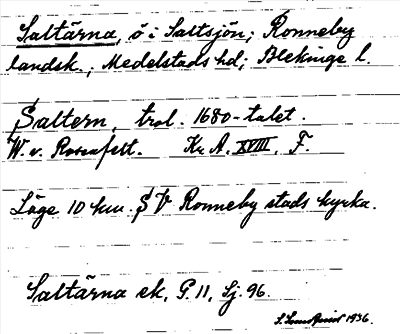 Saltärna, ö i Saltsjön; Ronneby
landsk.; Medelstads hd; Blekinge l.
Saltern, trol. 1680-talet.
W. v. Rosenfelt. Kr. A. XVIII. F.
Läge 10 km. S V Ronneby stads kyrka.
Saltärna ek. P. 11, Sj. 96.
S. Lundquist 1936.